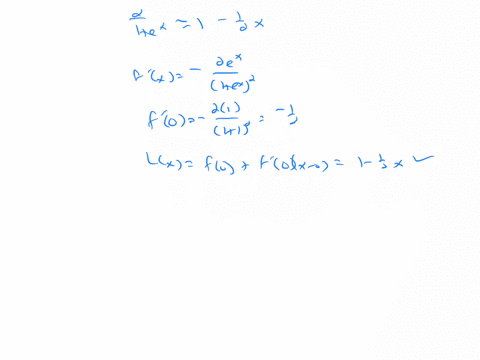 2/(1+e^x) ≈ 1 - 1/2 x
f'(x) = - 2e^x/(1+e^x)^2
f'(0) = - 2(1)/(1+1)^2 = - 1/2
L(x) = f(0) + f'(0)(x-0) = 1 - 1/2 x ✓